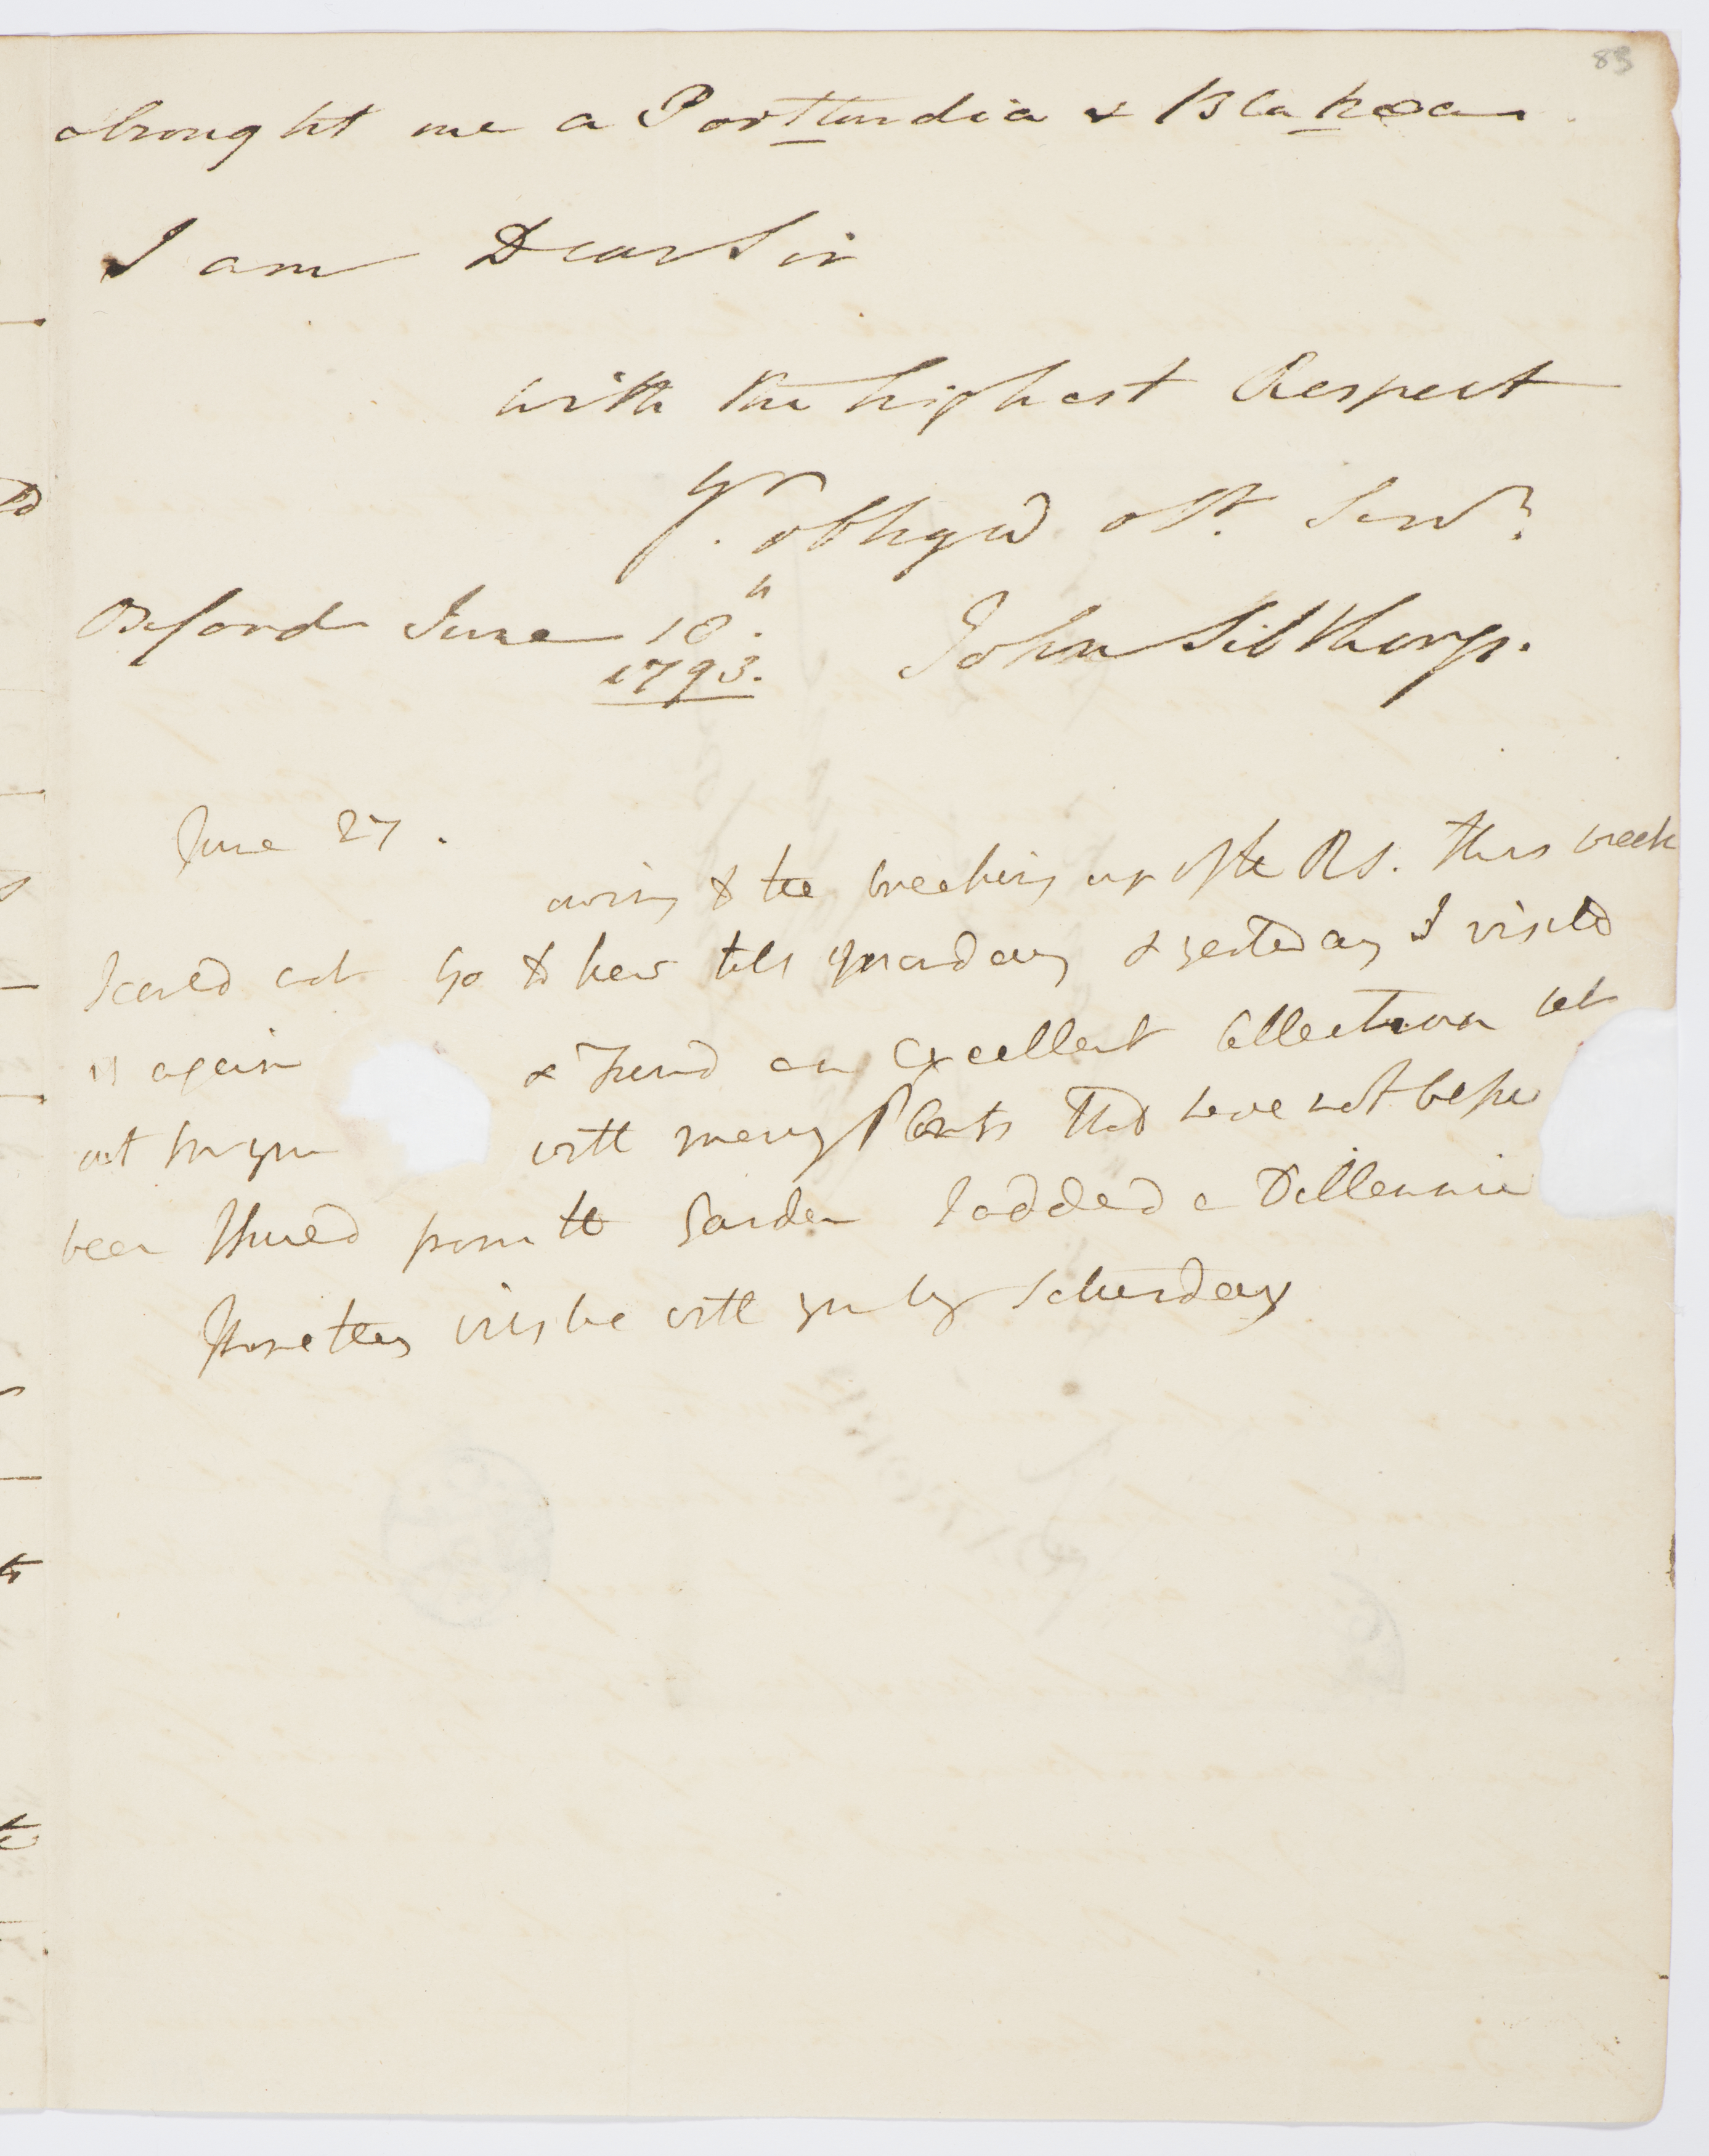 83
brought me a Portlandia & Blakea
I am Dear Sir
with the highest Respect
Yr. obliged obt. Servt.
Oxford June 18th. John Sibthorp.
1793.
June 27.
owing to the breaking up of the RS. this week
I could not go to Kew till yesterday I visited
it again & found an excellent Collection set
out for you with many Plants that have not before
been shared from the Garden I added a Dillennia
I hope they will be with you by Saturday